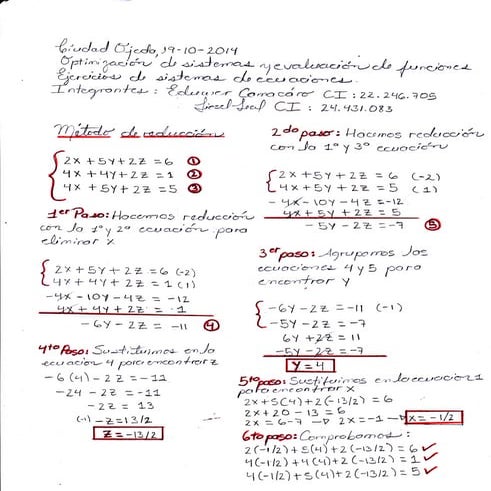 Ciudad Ojeda, 19-10-2014
Optimización de sistemas y evaluación de funciones
Ejercicios de sistemas de ecuaciones.
Integrantes: Eduyner Camacaro CI: 22.246.705
Leal CI: 24.431.083
Método de reducción
2x + 5y + 2z = 6 ①
4x + 4y + 2z = 1 ②
4x + 5y + 2z = 5 ③
1er Paso: Hacemos reducción
con la 1º y 2º ecuación para
eliminar x
2x + 5y + 2z = 6 (-2)
4x + 4y + 2z = 1 (1)
-4x - 10y - 4z = -12
4x + 4y + 2z = 1
-6y - 2z = -11 ④
4to Paso: Sustituimos en la
ecuación 4 para encontrar z
-6(4) - 2z = -11
-24 - 2z = -11
-2z = 13
(-1) -z = 13/2
z = -13/2
2do paso: Hacemos reducción
con la 1º y 3º ecuación
2x + 5y + 2z = 6 (-2)
4x + 5y + 2z = 5 (1)
-4x - 10y - 4z = -12
4x + 5y + 2z = 5
-5y - 2z = -7 ⑤
3er paso: Agrupamos las
ecuaciones 4 y 5 para
encontrar y
-6y - 2z = -11 (-1)
-5y - 2z = -7
6y + 2z = 11
-5y - 2z = -7
y = 4
5to paso: Sustituimos en la ecuacion 1
para encontrar x
2x + 5(4) + 2(-13/2) = 6
2x + 20 - 13 = 6
2x = 6 - 7 → 2x = -1 → x = -1/2
6to paso: Comprobamos:
2(-1/2) + 5(4) + 2(-13/2) = 6 ✓
4(-1/2) + 4(4) + 2(-13/2) = 1 ✓
4(-1/2) + 5(4) + 2(-13/2) = 5 ✓